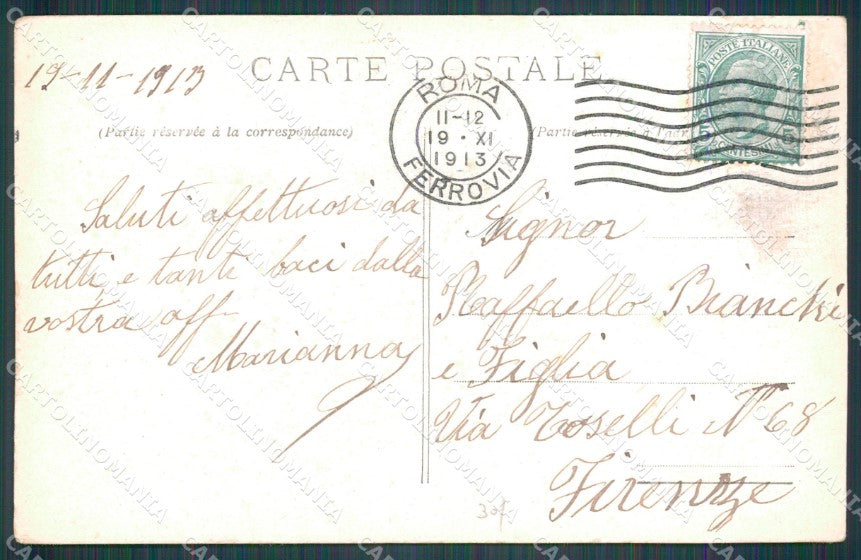 19-11-1913
CARTE POSTALE
ROMA
11-12
19 · XI
1913
FERROVIA
POSTE ITALIANE
5 5
(Partie réservée à la correspondance)
(Partie réservée à l'adr
Saluti affettuosi da
tutti e tanti baci dalla
vostra aff
Marianna
Signor
Raffaello Bianchi
e Figlia
Via Toselli N 68
Firenze
CARTOLINOMANIA